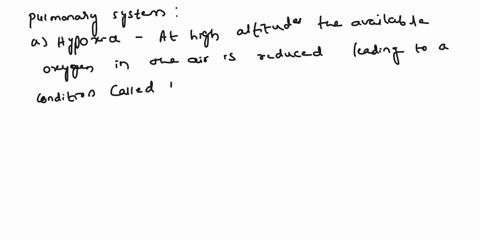 Pulmonary system :
a) Hypoxia - At high altitudes the available
oxygen in the air is reduced leading to a
condition called